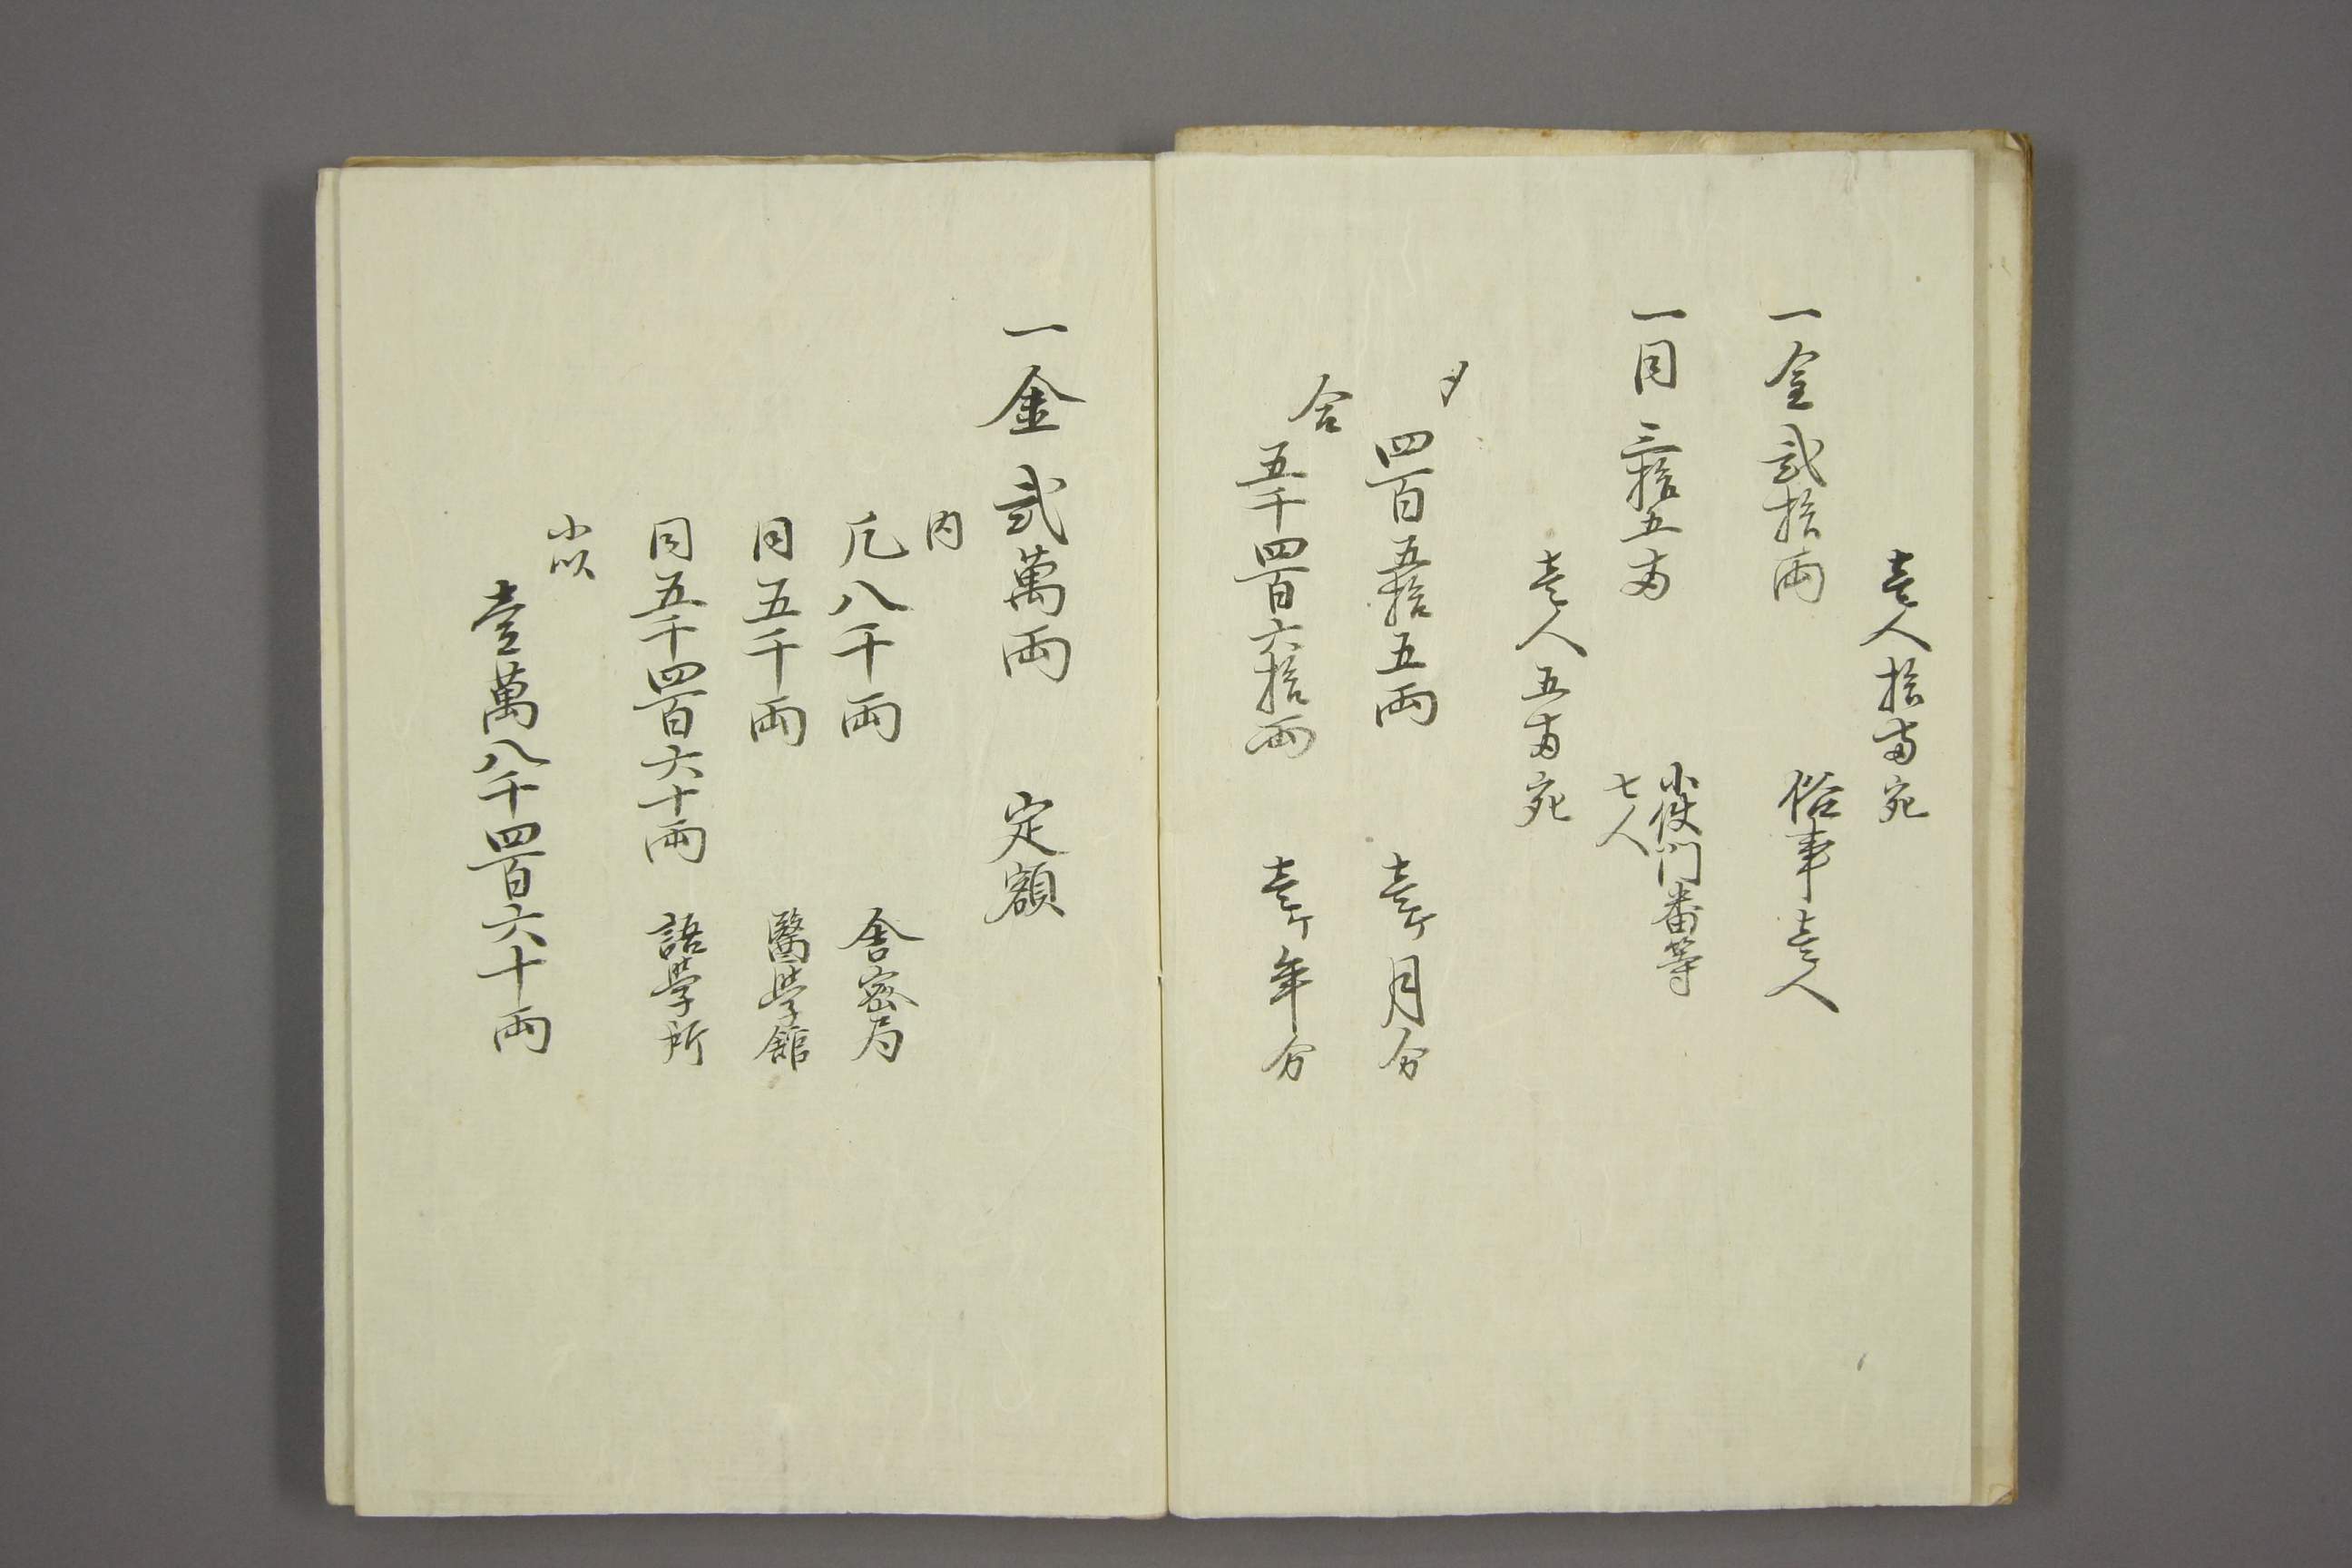 壱人拾両宛
一金弐拾両 俗事壱人
一同三拾五両 小使門番等
七人
壱人五両宛
〆
四百五拾五両 壱ケ月分
合
五千四百六拾両 壱ケ年分
一金弐萬両 定額
内
凡八千両 舎密局
同五千両 醫學館
同五千四百六十両 語學所
小以
壹萬八千四百六十両